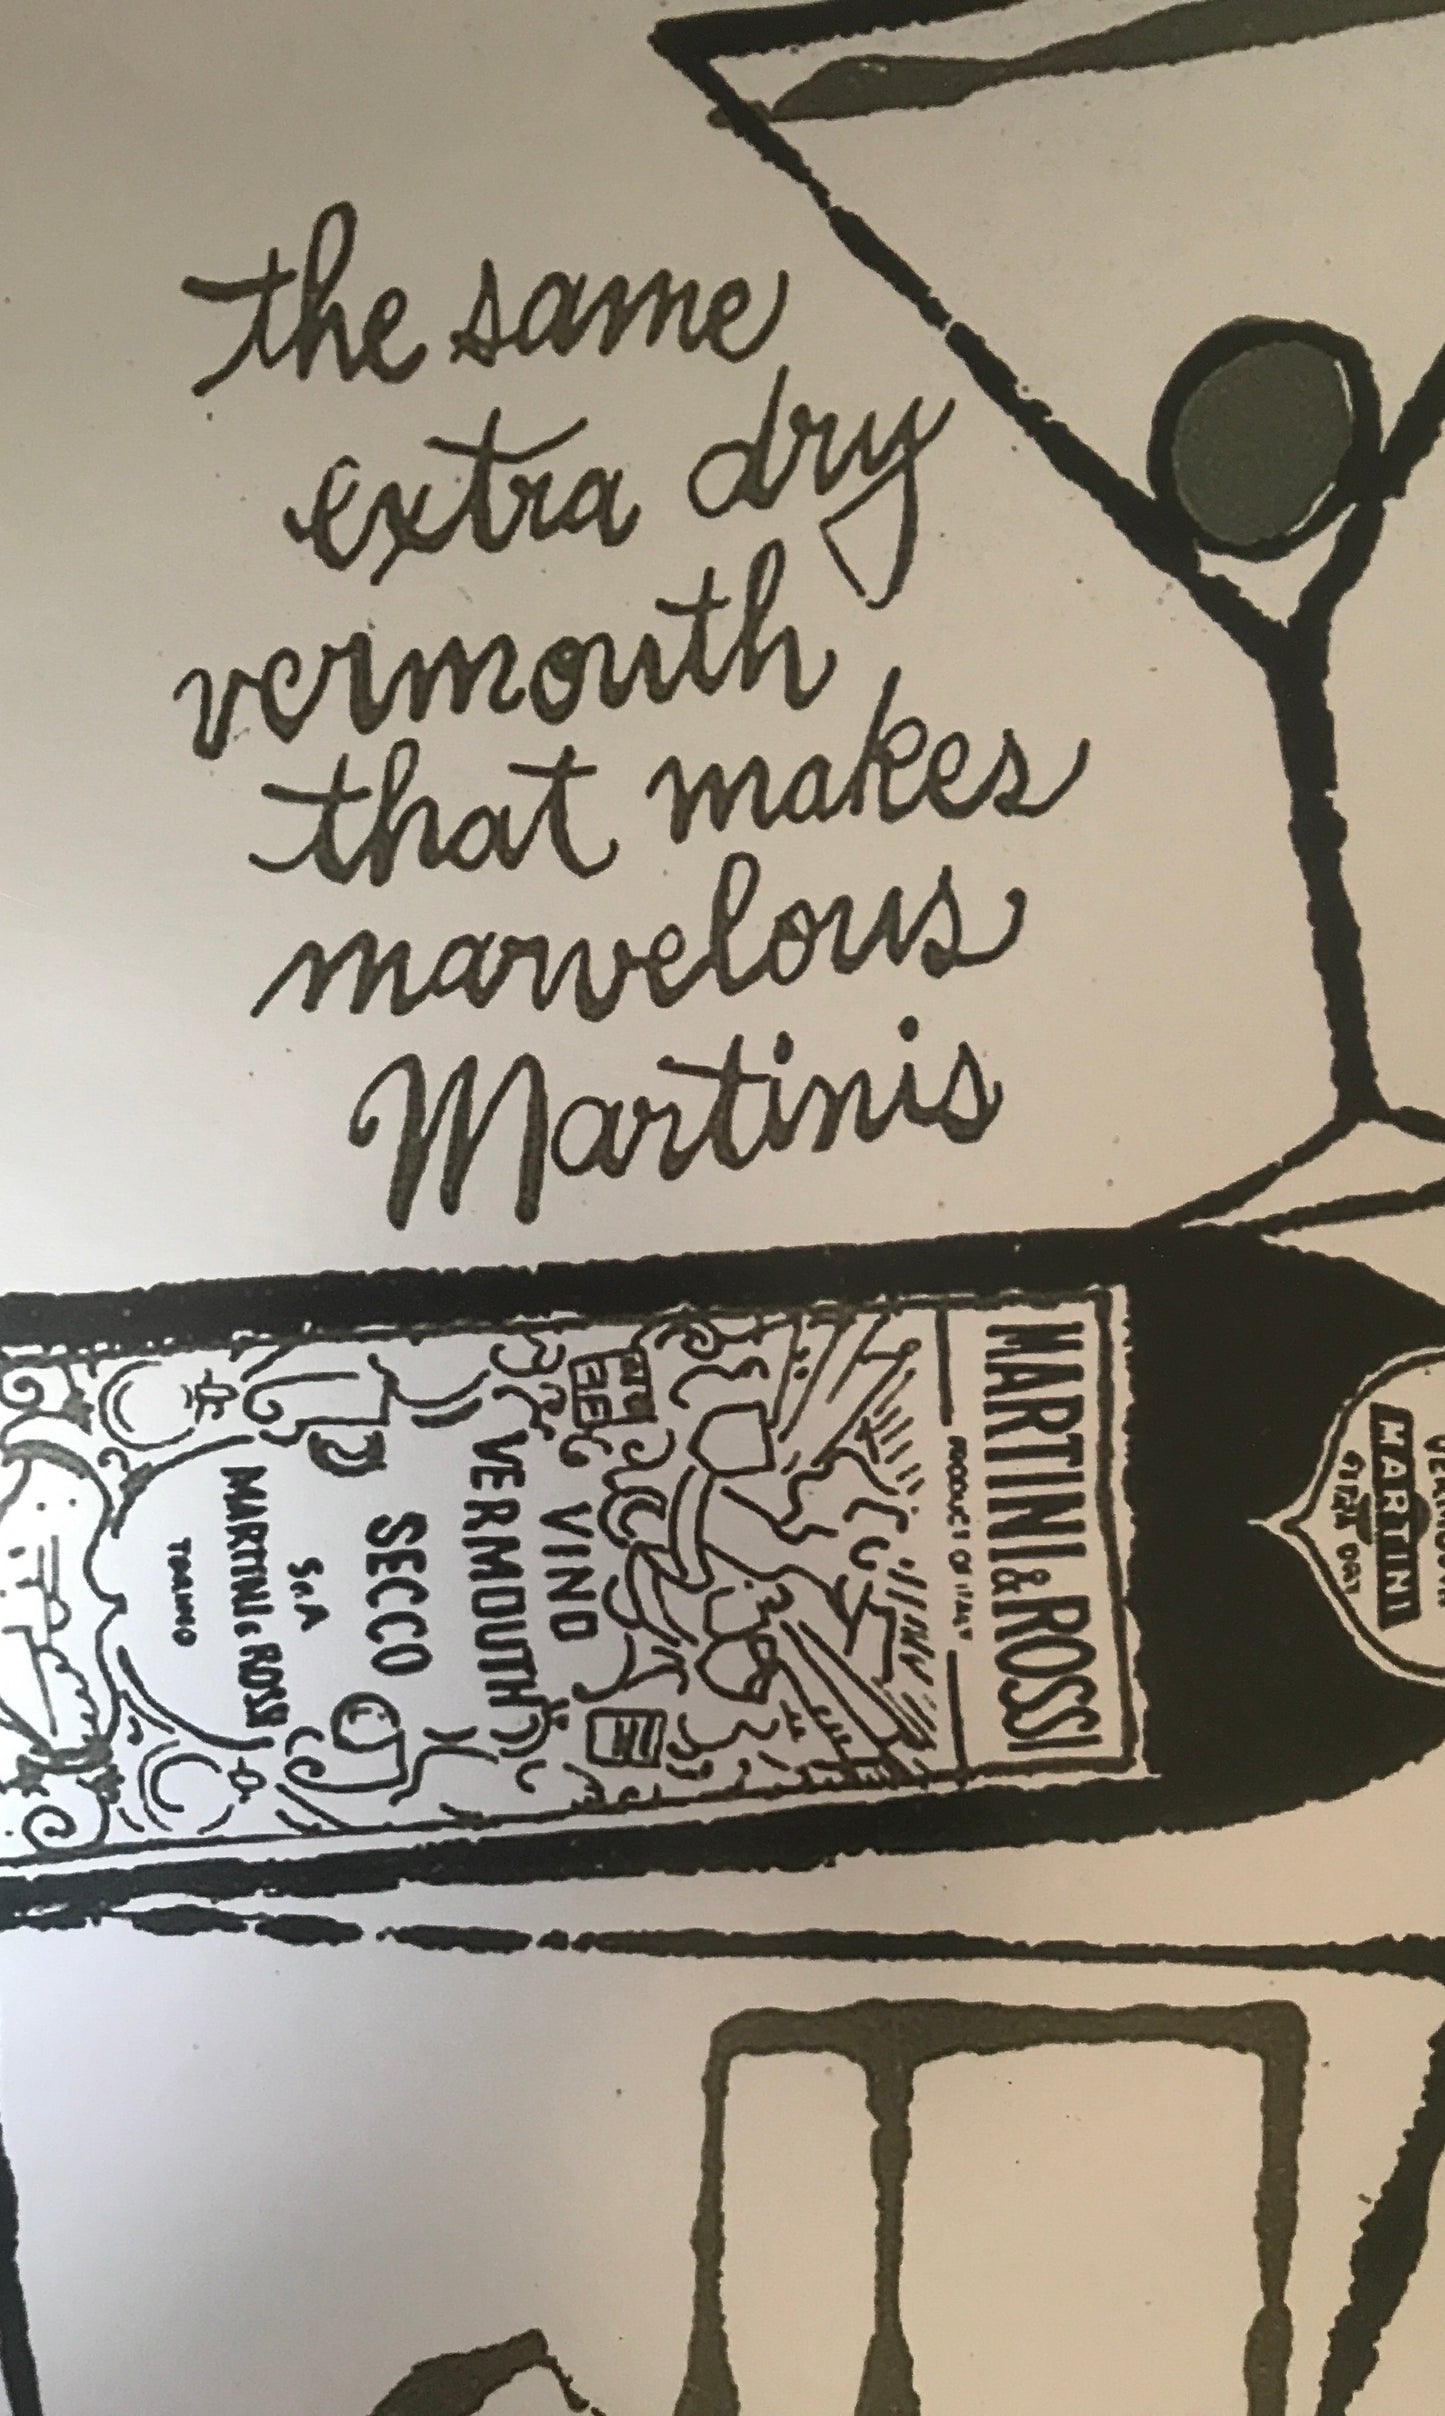 the same
extra dry
vermouth
that makes
marvelous
Martinis
MARTINI & ROSSI
PRODUCT OF ITALY
VINO
VERMOUTH
SECCO
S.A
MARTINI & ROSSI
TORINO
MARTINI
EXTRA DRY